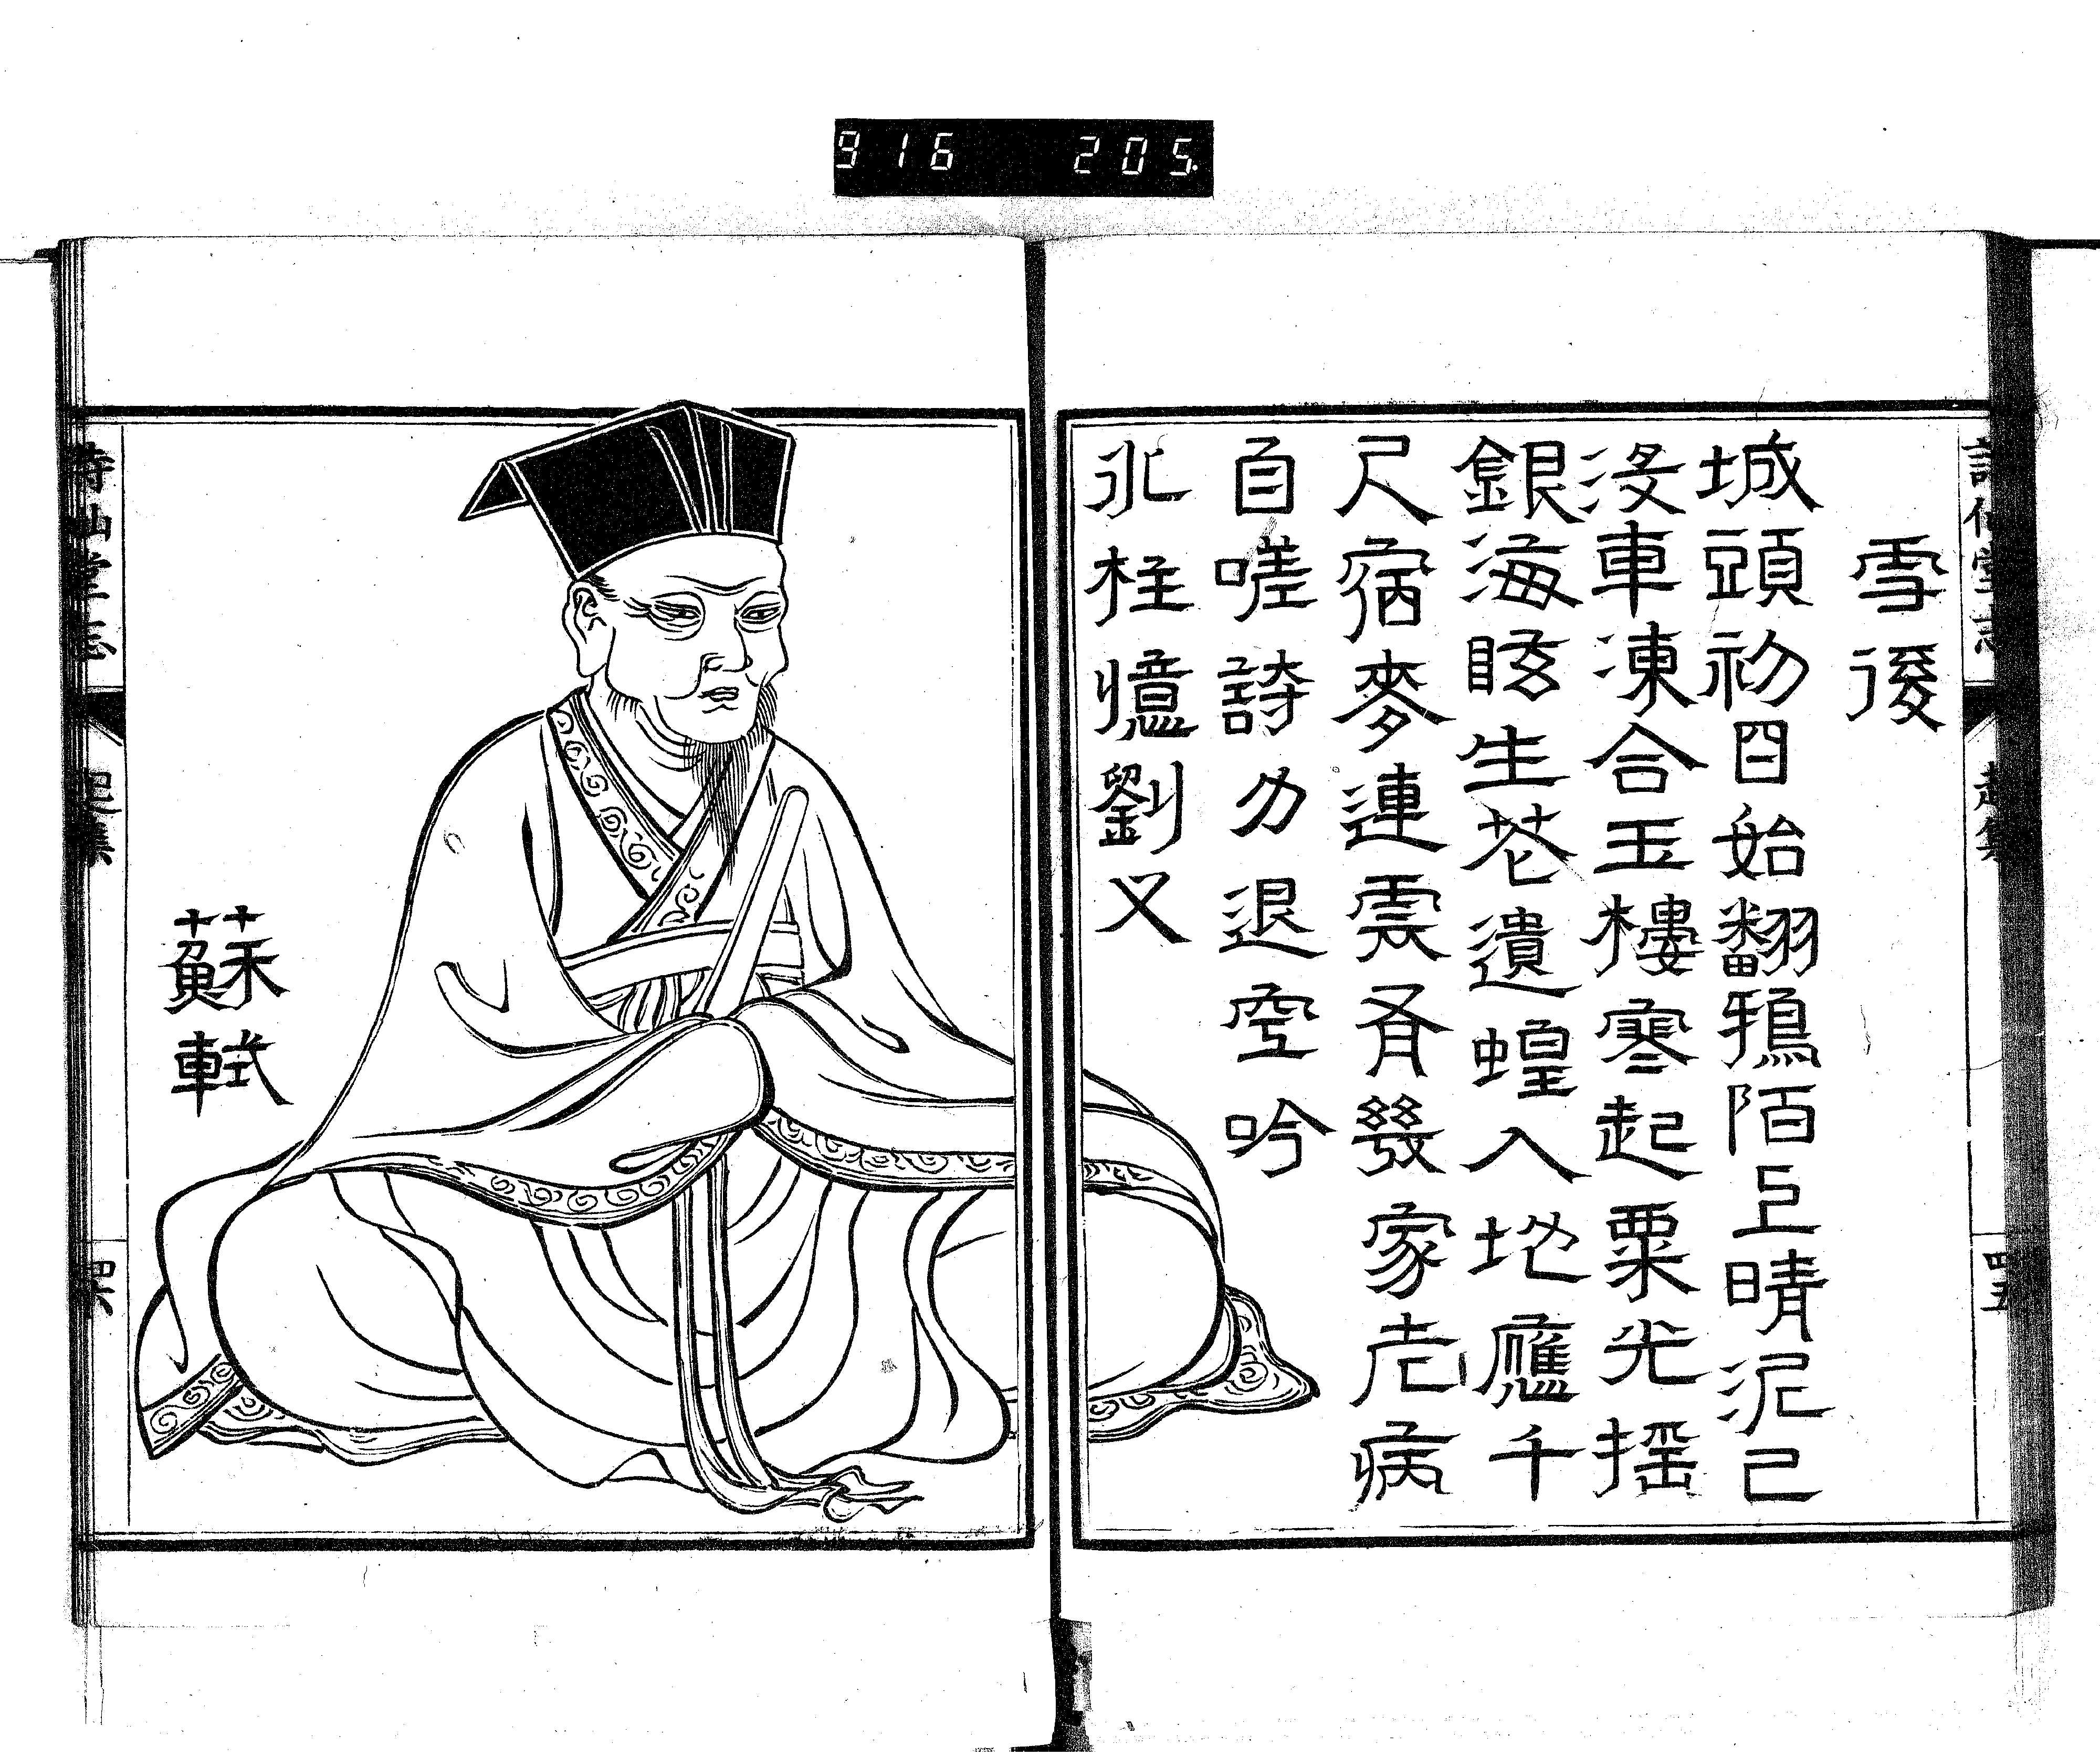 詩仙堂志
四五
雪後
城頭初日始翻鴉陌上晴泥已
沒車凍合玉樓寒起粟光搖
銀海眩生花遺蝗入地應千
尺宿麥連雲有幾家老病
自嗟詩力退空吟
氷柱憶劉又
蘇軾
詩仙堂志
四六
916 205